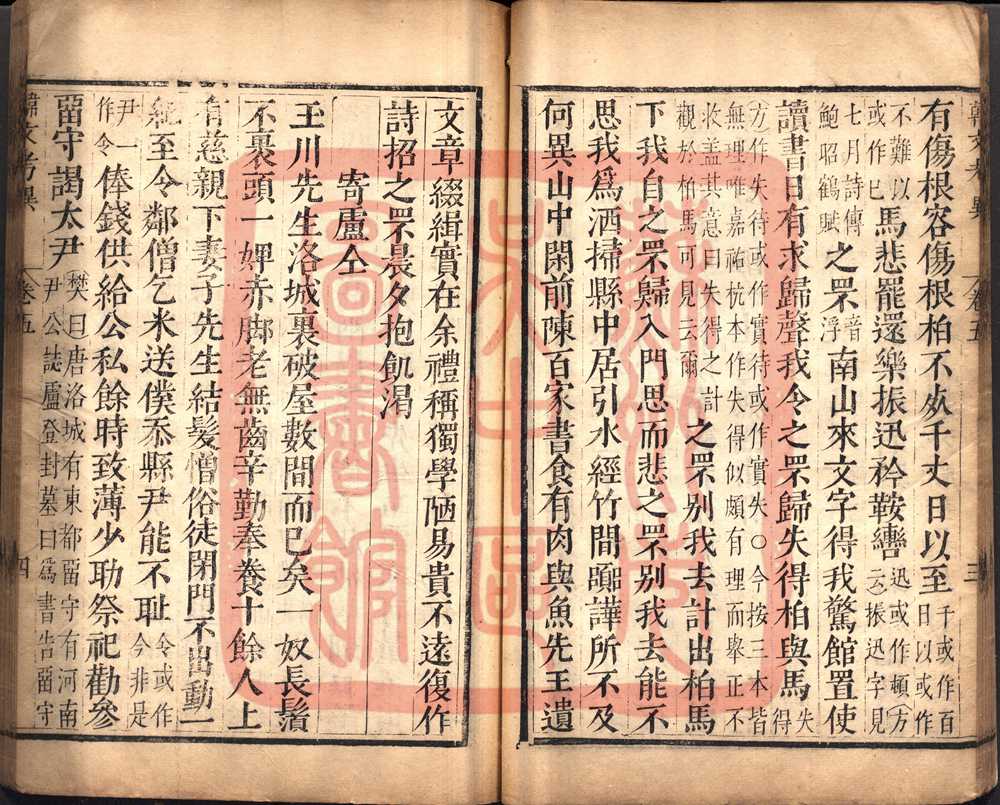 有傷根容傷根柏不疚千丈日以至千或作百日以或作
不難以或作已馬悲罷還樂振迅矜鞍轡迅或作頓(方云)振迅字見
七月詩傳鮑昭鶴賦之罘音浮南山來文字得我驚館置使
讀書日有求歸聲我令之罘歸失得柏與馬失得
方作失待或作實待或作實失○今按三本皆無理唯嘉祐杭本作失得似頗有理而舉正不
收盖其意曰失得之計觀於柏馬可見云爾之罘别我去計出柏馬
下我自之罘歸入門思而悲之罘别我去能不
思我爲洒掃縣中居引水經竹間囂譁所不及
何異山中閑前陳百家書食有肉與魚先王遺
韓文考異
卷五
三
文章綴緝實在余禮稱獨學陋易貴不遠復作
詩招之罘晨夕抱飢渴
寄盧仝
王川先生洛城裏破屋數間而已矣一奴長鬚
不裹頭一婢赤脚老無齒辛勤奉養十餘人上
有慈親下妻子先生結髮憎俗徒閉門不出動一
紀至今鄰僧乞米送僕忝縣尹能不耻令或作今非是
尹一作令俸錢供給公私餘時致薄少助祭祀勸參
畱守謁太尹樊曰唐洛城有東都畱守有河南尹公誌盧登封墓曰爲書告畱守
韓文考異
卷五
四